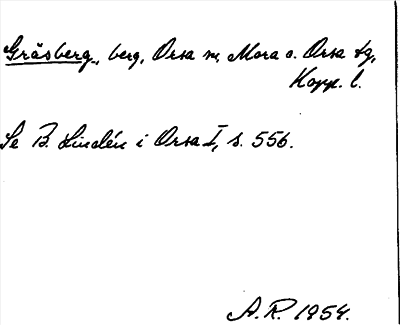 Gråsberg, berg, Orsa sn, Mora o. Orsa tg,
Kopp. l.
Se B. Lindén i Orsa I, s. 556.
A.R. 1954.